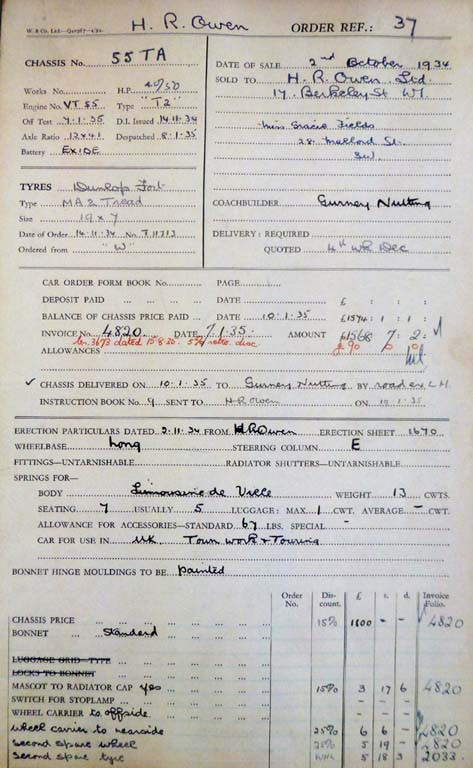 W. & Co. Ltd.
H. R. Owen
ORDER REF.: 37
CHASSIS No. 55TA
Works No. H.P. 40/50
Engine No. VT 55 Type "T2"
Off Test 7.1.35 D.I. Issued 14.11.34
Axle Ratio 12 x 41 Despatched 8.1.35
Battery EXIDE
DATE OF SALE 2nd October 1934
SOLD TO H. R. Owen Ltd.
17. Berkeley St W1.
Miss Gracie Fields
COACHBUILDER Gurney Nutting
DELIVERY: REQUIRED
QUOTED 4th wk Dec
TYRES Dunlop Fort
Type MA2 Tread
Size 19 x 7
Date of Order 14.11.34 No. T11713
Ordered from "W"
CAR ORDER FORM BOOK No. PAGE
DEPOSIT PAID DATE £ : :
BALANCE OF CHASSIS PRICE PAID DATE 10.1.35 £1574 : 1 : 1
INVOICE No. 4820 DATE 7.1.35. AMOUNT £1568 7 : 2
3673 dated 15.8.35 5% retro. disc
ALLOWANCES £90 0 0
✓ CHASSIS DELIVERED ON 10.1.35 TO Gurney Nutting BY road ex L.H.
INSTRUCTION BOOK No. 9 SENT TO H R Owen ON 10.1.35
ERECTION PARTICULARS DATED 2.11.34 FROM H R Owen ERECTION SHEET 1670
WHEELBASE Long STEERING COLUMN E
FITTINGS—UNTARNISHABLE RADIATOR SHUTTERS—UNTARNISHABLE
SPRINGS FOR—
BODY Limousine de Ville WEIGHT 13 CWTS.
SEATING 7 USUALLY 5 LUGGAGE: MAX. 1 CWT. AVERAGE - CWT.
ALLOWANCE FOR ACCESSORIES—STANDARD 67 LBS. SPECIAL -
CAR FOR USE IN UK Town work & Touring
BONNET HINGE MOULDINGS TO BE painted
Order No. Discount. £ s. d. Invoice Folio.
CHASSIS PRICE 15% 1800 - - 4820
BONNET Standard
LUGGAGE GRID—TYPE
LOCKS TO BONNET
MASCOT TO RADIATOR CAP yes 15% 3 17 6 4820
SWITCH FOR STOPLAMP
WHEEL CARRIER to offside
wheel carrier to nearside 25% 6 6 - 4820
second spare wheel 25% 5 19 - 4820
second spare tyre 5 18 3 2033